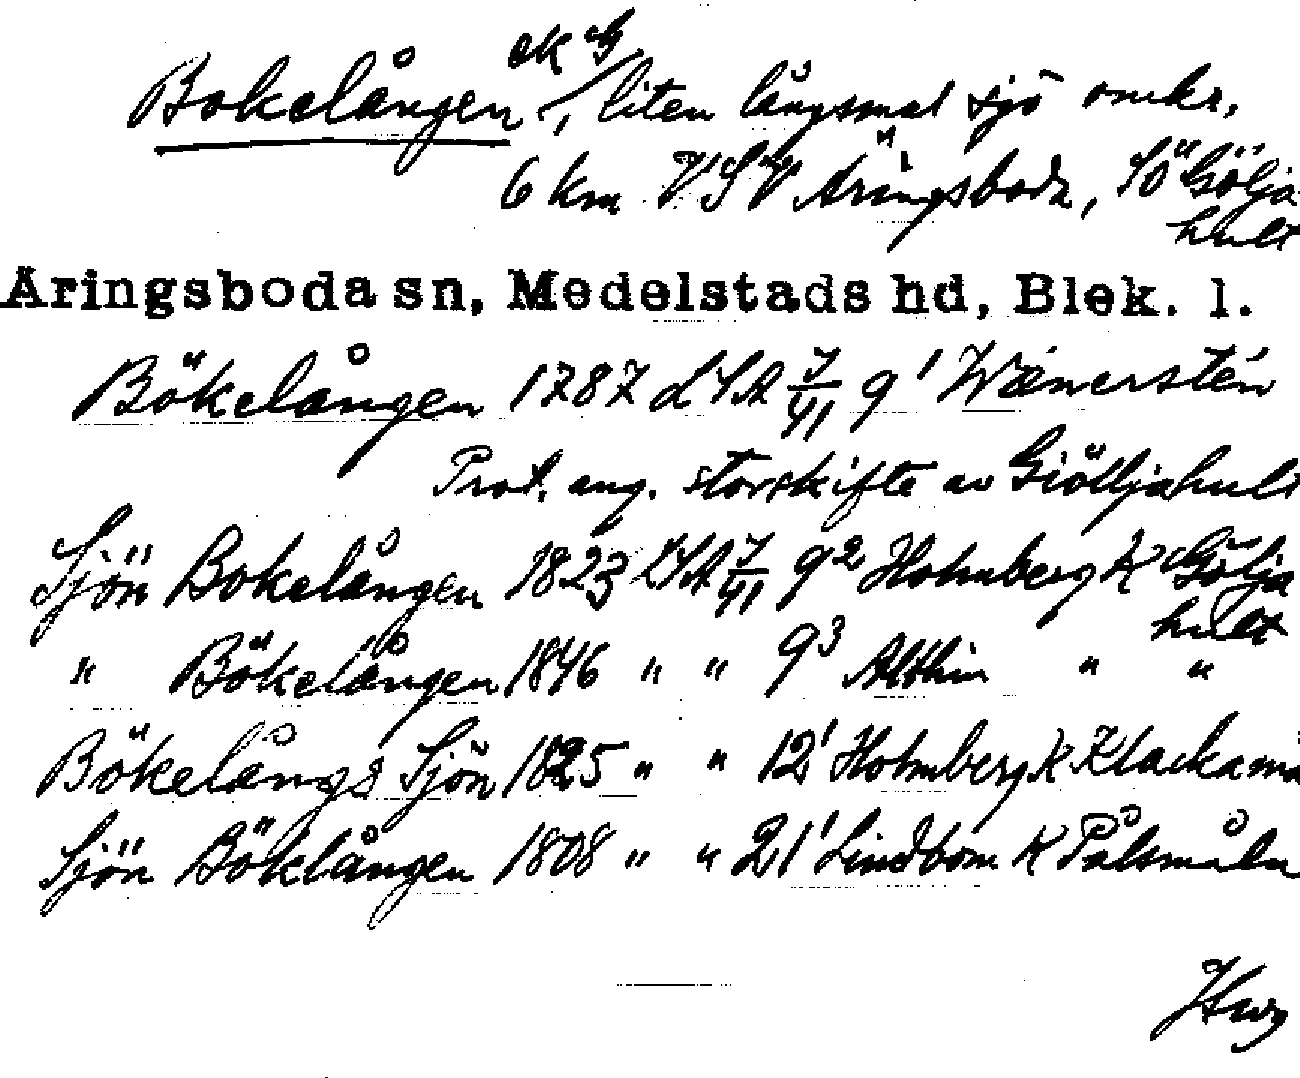 ek G
Bokelången /, liten långsmal sjö omkr.
6 km VSV Äringsboda, SÖ Gölja
hult
Aringsboda sn, Medelstads hd, Blek. l.
Bökelången 1787 LSA 7/41 9¹ Wænerstén
Prot. ang. storskifte av Giölljahult
Sjön Bokelången 1823 LSA 7/41 9² Holmberg K Gölja
hult
" Bökelången 1846 " " 9³ Althin " "
Bökelångs Sjön 1825 " " 12¹ Holmberg K Klackamå
Sjön Böklången 1808 " " 21¹ Lindbom K Pålsmåla